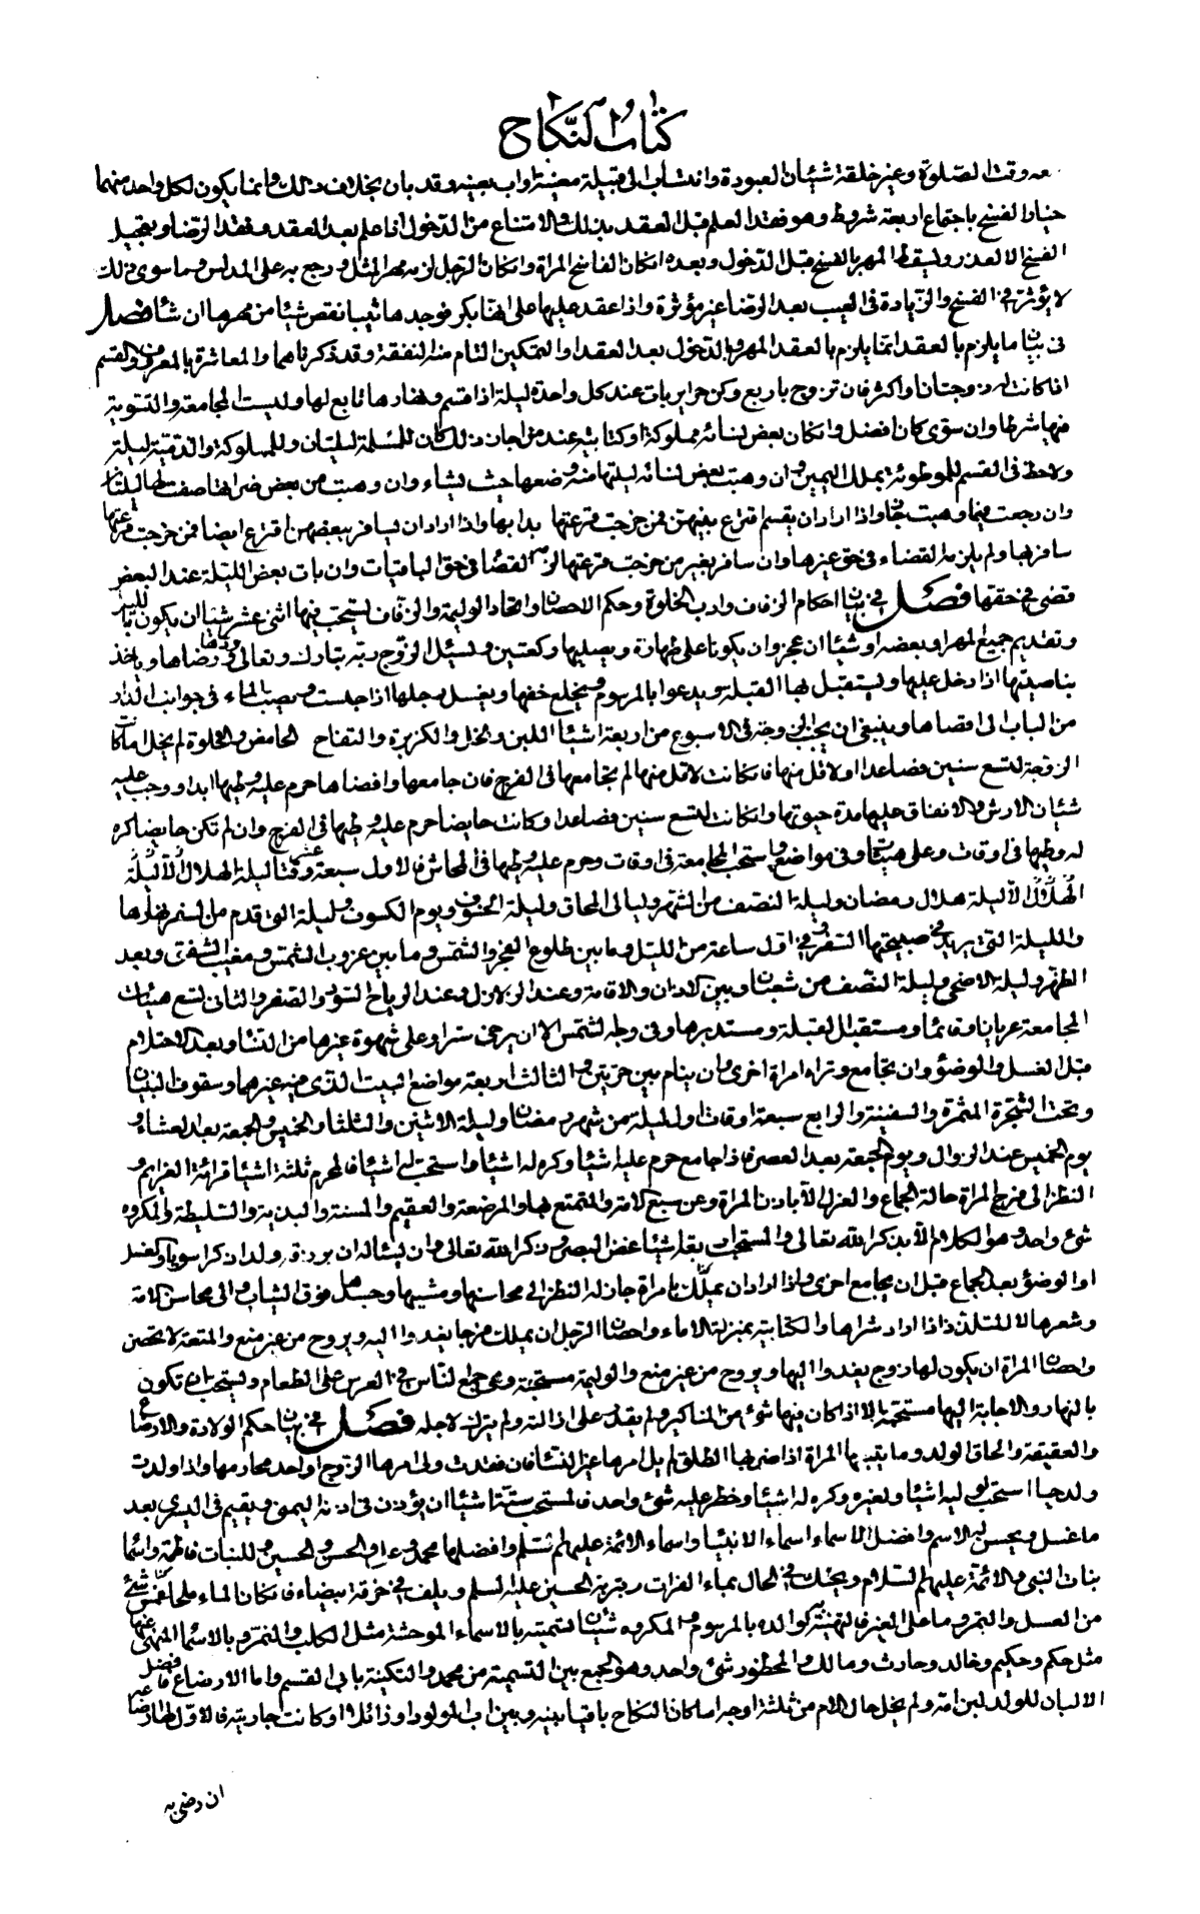 كتاب النكاح
معه وقت الصلوة وعير خلقة شيئان العبودة وانتساب الى قبيلة معينة او اب بعينه وقد بان بخلاف ذلك وانما يكون لكل واحد منهما
خيار الفسخ باجتماع اربعة شروط وهو فقد العلم قبل العقد بذلك والامتناع من الدخول اذا علم بعد العقد وفقد الرضا وتعجيل
الفسخ الا لعذر ويسقط المهر بالفسخ قبل الدخول وبعده ان كان الفاسخ المراة وان كان الرجل لزمه مهر المثل ورجع به على المدلس وما سوى ذلك
لا يؤثر في الفسخ والزيادة في العيب بعد الرضا غير مؤثرة واذا عقد عليها على انها بكر فوجدها ثيبا نقص شيئا من مهرها ان شاء فصل
في بيان ما يلزم بالعقد انما يلزم بالعقد المهر وبالدخول بعد العقد او التمكين التام منه النفقة وقد ذكرناهما والمعاشرة بالمعروف والقسم
اذا كانت له زوجتان او اكثر فان تزوج باربع وكن حراير بات عند كل واحدة ليلة اذا قسم ونهارها تابع لها وليست المجامعة والتسوية
فيها شرطا وان سوى كان افضل وان كان بعض نسائه مملوكة او كتابية عند من اجاز ذلك كان للمسلمة ليلتان وللمملوكة والذمية ليلة
ولا حظ في القسم للموطوئة بملك اليمين وان وهبت بعض نسائه ليلتها منه وضعها حيث يشاء وان وهبت من بعض ضرائها صفت لها ليلتان
وان رجعت فيما وهبت جاز واذا اراد ان يقسم اقترع بينهن فمن خرجت قرعتها بدا بها واذا اراد ان يسافر ببعضهن اقترع ايضا فمن خرجت قرعتها
سافر بها ولم يلزمه القضاء في حق غيرها وان سافر بغير من خرجت قرعتها لزمه القضاء في حق الباقيات وان بات بعض الليلة عند البعض
قضى في حقها فصل في بيان احكام الزفاف وادب الخلوة وحكم الاحصان واتخاذ الوليمة والزفاف يستحب فيها اثنى عشر شيئا ان يكون بالليل
وتقديم جميع المهر او بعضه او شيئا ان عجز وان يكونا على طهارة ويصليها ركعتين ويسئل الزوج ربه تبارك وتعالى ودها ورضاها وياخذ
بناصيتها اذا دخل عليها ويستقبل بها القبلة ويدعوا بالمرسوم ويخلع خفها ويغسل رجلها اذا جلست ويصب الماء في جوانب الدار
من الباب الى اقصاها وينبغي ان يجنب الزوجة في الاسبوع من اربعة اشياء اللبن والخل والكزبرة والتفاح الحامض والخلوة لم يخل اما كانت
الزوجة لتسع سنين فصاعدا او لاقل منها فان كانت لاقل منها لم يجامعها في الفرج فان جامعها وافضاها حرم عليه وطيها ابدا ووجب عليه
شيئان الارش والانفاق عليها مدة حيوتها وان كانت لتسع سنين فصاعدا وكانت حايضا حرم عليه وطيها في الفرج وان لم تكن حايضا كره
له وطيها في اوقات وعلى هيئات وفي مواضع واستحب المجامعة في اوقات وحرم عليه وطيها في المحاش فالاول سبعة عشر وقتا ليلة الهلال الا ليلة
الهلال الا ليلة هلال رمضان وليلة النصف من الشهر وليالي المحاق وليلة الخسوف ويوم الكسوف وليلة التي قدم من السفر نهارها
والليلة التي يريد في صبيحتها السفر وفي اول ساعة من الليل وما بين طلوع الفجر والشمس وما بين غروب الشمس ومغيب الشفق وبعد
الظهر وليلة الاضحى وليلة النصف من شعبان وبين الاذان والاقامة وعند الزلازل وعند الرياح السود والصفر والثاني تسع هيئات
المجامعة عريانا وقائما ومستقبل القبلة ومستدبرها وفي وجه الشمس الا ان يرخى سترا وعلى شهوة غيرها من النساء وبعد الاحتلام
قبل الغسل والوضوء وان يجامع وتراه امراة اخرى وان ينام بين حرتين والثالث اربعة مواضع البيت الذى فيه غيرهما وسقوف البنيان
وتحت الشجرة المثمرة والسفينة والرابع سبعة اوقات اول ليلة من شهر رمضان وليلة الاثنين والثلثاء والخميس والجمعة بعد العشاء و
يوم الخميس عند الزوال ويوم الجمعة بعد العصر فاذا جامع حرم عليه اشياء وكره له اشياء واستحب له اشياء فالمحرم ثلثة اشياء قرائة العزايم و
النظر الى فرج المراة حالة الجماع والعزل الا باذن المراة وعن سبع الامة والمتمتع بها والمرضعة والعقيم والمسنة والبذية والسليطة والمكروه
شئ واحد وهو الكلام الا بذكر الله تعالى والمستحب اربعة اشياء غض البصر وذكر الله تعالى وان يسئاله ان يرزقه ولدا ذكرا سويا والغسل
او الوضوء بعد الجماع قبل ان يجامع اخرى واذا اراد ان يملك بامراة جاز له النظر الى محاسنها ومشيها وجسدها فوق الثياب والى محاسن الامة
وشعرها لا للتلذذ اذا اراد شراها والكتابية بمنزلة الاماء واحصان الرجل ان يملك فرجا يغدوا اليه ويروح من غير منع والمتعة لا تحصن
واحصان المراة ان يكون لها زوج يغدوا اليها ويروح من غير منع والوليمة مستحبة وهى جمع الناس في العرس على الطعام ويستحب ان تكون
بالنهار والاجابة اليها مستحبة الا اذا كان فيها شئ من المناكير ولم يقدر على ازالته ولم يترك لاجله فصل في بيان حكم الولادة والارضاع
والعقيقة والحاق الولد وما يتبعها المراة اذا ضربها الطلق لم يل امرها غير النساء فان فقدت ولى امرها الزوج او احد محارمها واذا ولدت
ولدا حيا استحب لوليه اشياء ولغيره وكره له اشياء وحظر عليه شئ واحد فالمستحب ستة اشياء ان يؤذن في اذنه اليمنى ويقيم في اليسرى بعد
ما غسل ويحسن له الاسم وافضل الاسماء اسماء الانبياء واسماء الائمة عليهم السلام وافضلها محمد وعلي والحسن والحسين وللبنات فاطمة واسماء
بنات النبي والائمة عليهم السلام ويحنك في الحال بماء الفرات وتربة الحسين عليه السلم ويلف في خرقة بيضاء فان كان الماء ملحا خلط شئ
من العسل والتمر وما على الغير فالتهنية لوالده بالمرسوم والمكروه شيئان التسمية بالاسماء الموحشة مثل الكلب والنمر وبالاسماء المنهى عنها
مثل حكم وحكيم وخالد وحارث ومالك والمحظور شئ واحد وهو الجمع بين التسمية من محمد والتكنية بابى القسم واما الارضاع فافضل
الالبان للولد لبن امه ولم يخل حال الام من ثلثة اوجه اما كان النكاح باقيا بينه وبين اب المولود او زائلا او كانت جاريته فالاول لها ارضاعه
ان رضى به